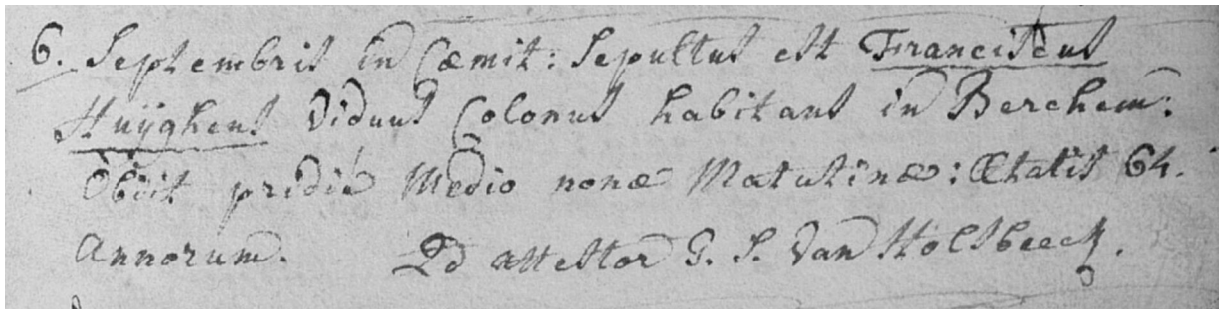 6. Septembris in Cœmit: Sepultus est Franciscus
Huÿghens Viduus Colonus habitans in Berchem:
Obiit pridié Medio nonæ Matutinæ: Ætatis 64.
Annorum. Qd attestor G. S. Van Holsbeeck.